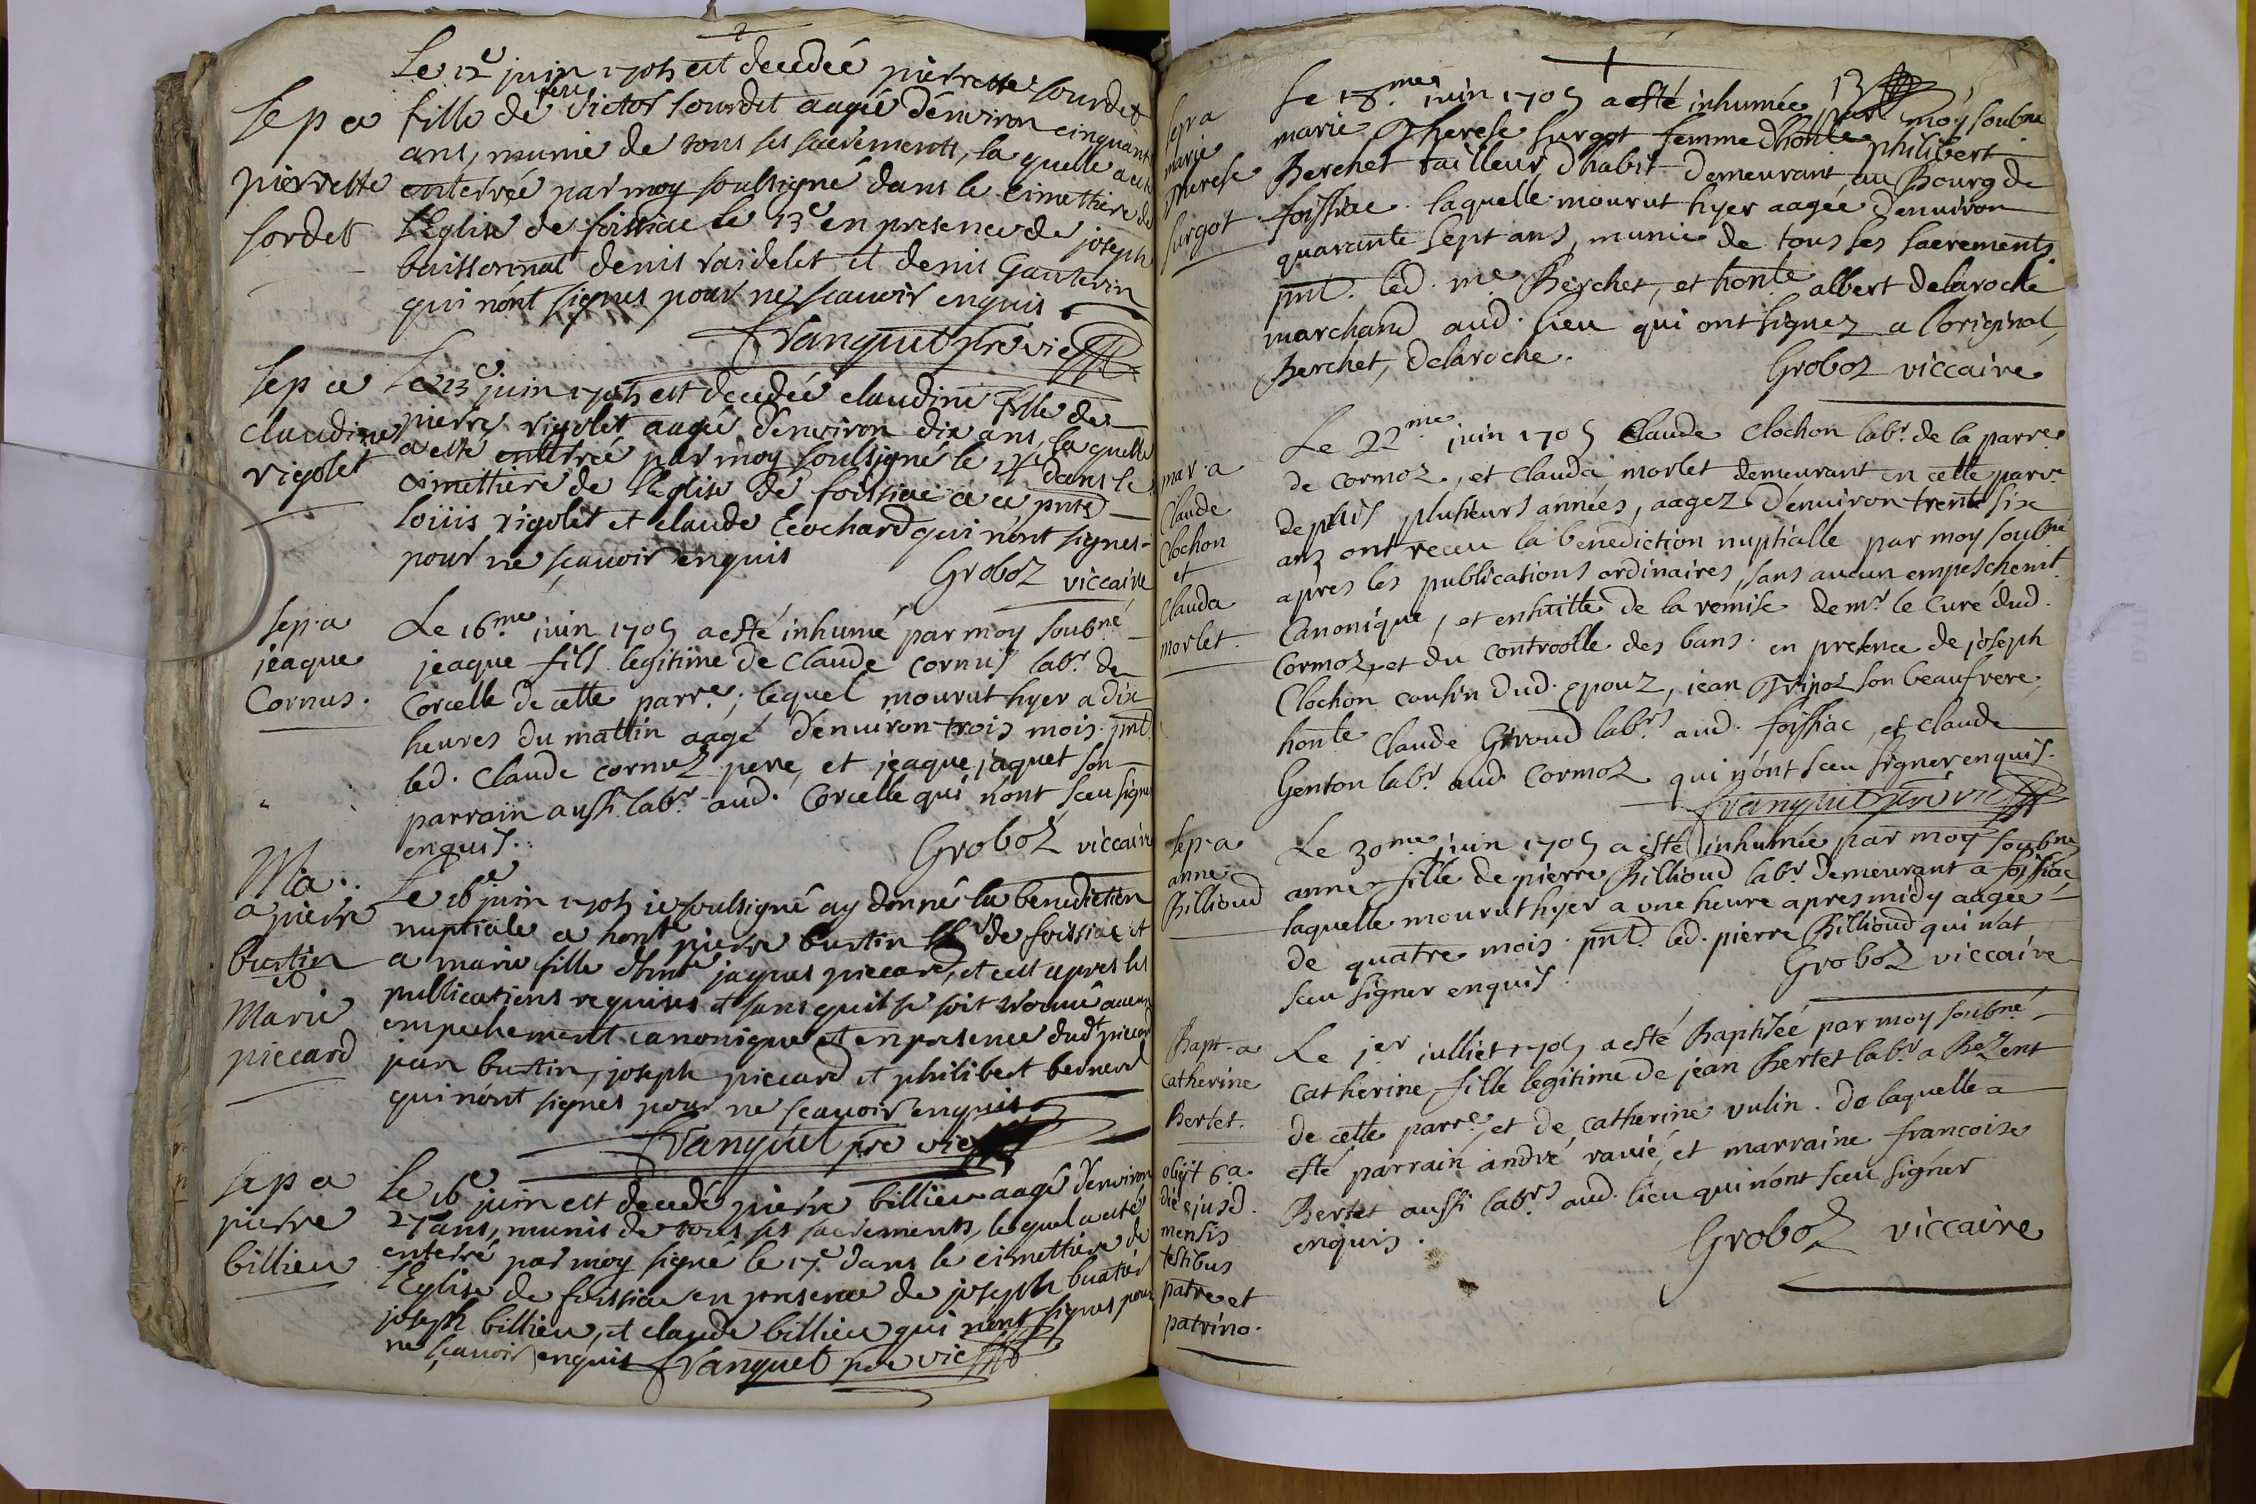 Le 12e juin 1705 est decedée pierrette sourdet
sep a
pierrette
sordet
fille de feu victor sourdet aagée d'environ cinquante
ans, munie de tous ses sacrements, la quelle a esté
enterrée par moy soulsigné dans le cimettiere de
l'Eglise de foissiac le 13e en presence de joseph
buissonnat denis raidelet et denis Gautevin
qui n'ont signes pour ne scavoir enquis
Vanquet pre vic
sep a
claudine
rigolet
Le 13e juin 1705 est decedée claudine fille de
pierre rigolet aagée d'environ dix ans, la quelle
a esté enterrée par moy soulsigné le 14e dans le
cimettiere de l'Eglise de foissiac a ce pnts
loüis rigolet et claude Ecochard qui n'ont signes
pour ne sçavoir enquis
Groboz viccaire
sep. a
jeaque
Cornus.
Le 16.me juin 1705 a esté inhumé par moy soubné
jeaque fils legitime de Claude cornus labr. de
Corcelle de cette parre; lequel mourut hyer a dix
heures du mattin aagé d'environ trois mois. pnt.
led. Claude cornuz pere, et jeaque jaquet son
parrain aussi labr. aud. Corcelle qui n'ont sceu signer
enquis.
Groboz viccaire
Ma..
a pierre
burtin
et
Marie
piccard
Le 16e juin 1705 ie soulsigné ay donné la benediction
nuptiale a honte pierre burtin de foissiac et
a marie fille d'honte jaques piccard, et cest apres les
publications requises et sans quil se soit trouué aucun
empechement canonique et en presence dudt piccard
jean burtin, joseph piccard et philibert bernard
qui n'ont signes pour ne scavoir enquis
Vanquet pre vic
sep a
pierre
billieu
Le 16e juin est decedé pierre billieu aagé d'environ
27 ans, munis de tous ses sacrements, lequel a esté
enterré par moy signé le 17e dans le cimettiere de
l'Eglise de foissiac en presence de joseph buatier
joseph billieu, et claude billieu qui n'ont signes pour
ne sçavoir enquis Vanquet pre vic
13
sep a
marie
Therese
surgot
Le 18.me juin 1705 a esté inhumée par moy soubné
marie Therese surgot femme d'honte philibert
Berchet tailleur d'habit demeurant au Bourg de
foissiac. laquelle mourut hyer aagée d'enuiron
quarante sept ans, munie de tous ses sacrements
pnt. led. me Berchet, et honte albert delaroche
marchand aud. lieu qui ont signez a l'original,
Berchet, delaroche.
Groboz viccaire
mar. a
Claude
Clochon
et
Clauda
morlet.
Le 22me juin 1705 Claude Clochon labr. de la parre
de cormoz, et Clauda morlet demeurant en cette parre
depuis plusieurs années, aagez d'enuiron trente six
ans ont receu la benediction nuptialle par moy soubné
apres les publications ordinaires, sans aucun empeschemt.
Canonique, et ensuitte de la remise de mr. le Curé dud.
Cormoz, et du controolle des bans. en presence de joseph
Clochon cousin dud. epouz, jean Tripoz son beaufrere,
honte Claude Giroud labrs aud. foissiac, et claude
Genton labr. aud. Cormoz qui n'ont sceu signer enquis.
Vanquet pre vic
sep. a
anne
Billioud
Le 30me juin 1705 a esté inhumée par moy soubné
anne fille de pierre Billioud labr. demeurant a foissiac
laquelle mourut hyer a une heure apres midy aagée
de quatre mois. pnt. led. pierre Billioud qui n'at
sceu signer enquis.
Groboz viccaire
Bapt. a
catherine
Bertet.
Le jer julliet 1705 a esté Baptisée par moy soubné
Catherine, fille legitime de jean Bertet labr. a Bezent
de cette parre, et de catherine vulin. de laquelle a
esté parrain andré ravié, et marraine francoise
Bertet aussi labrs. aud. lieu qui n'ont sceu signer
enquis.
Groboz viccaire
obijt 6.a
die ejusd.
mensis
testibus
patre et
patrino.